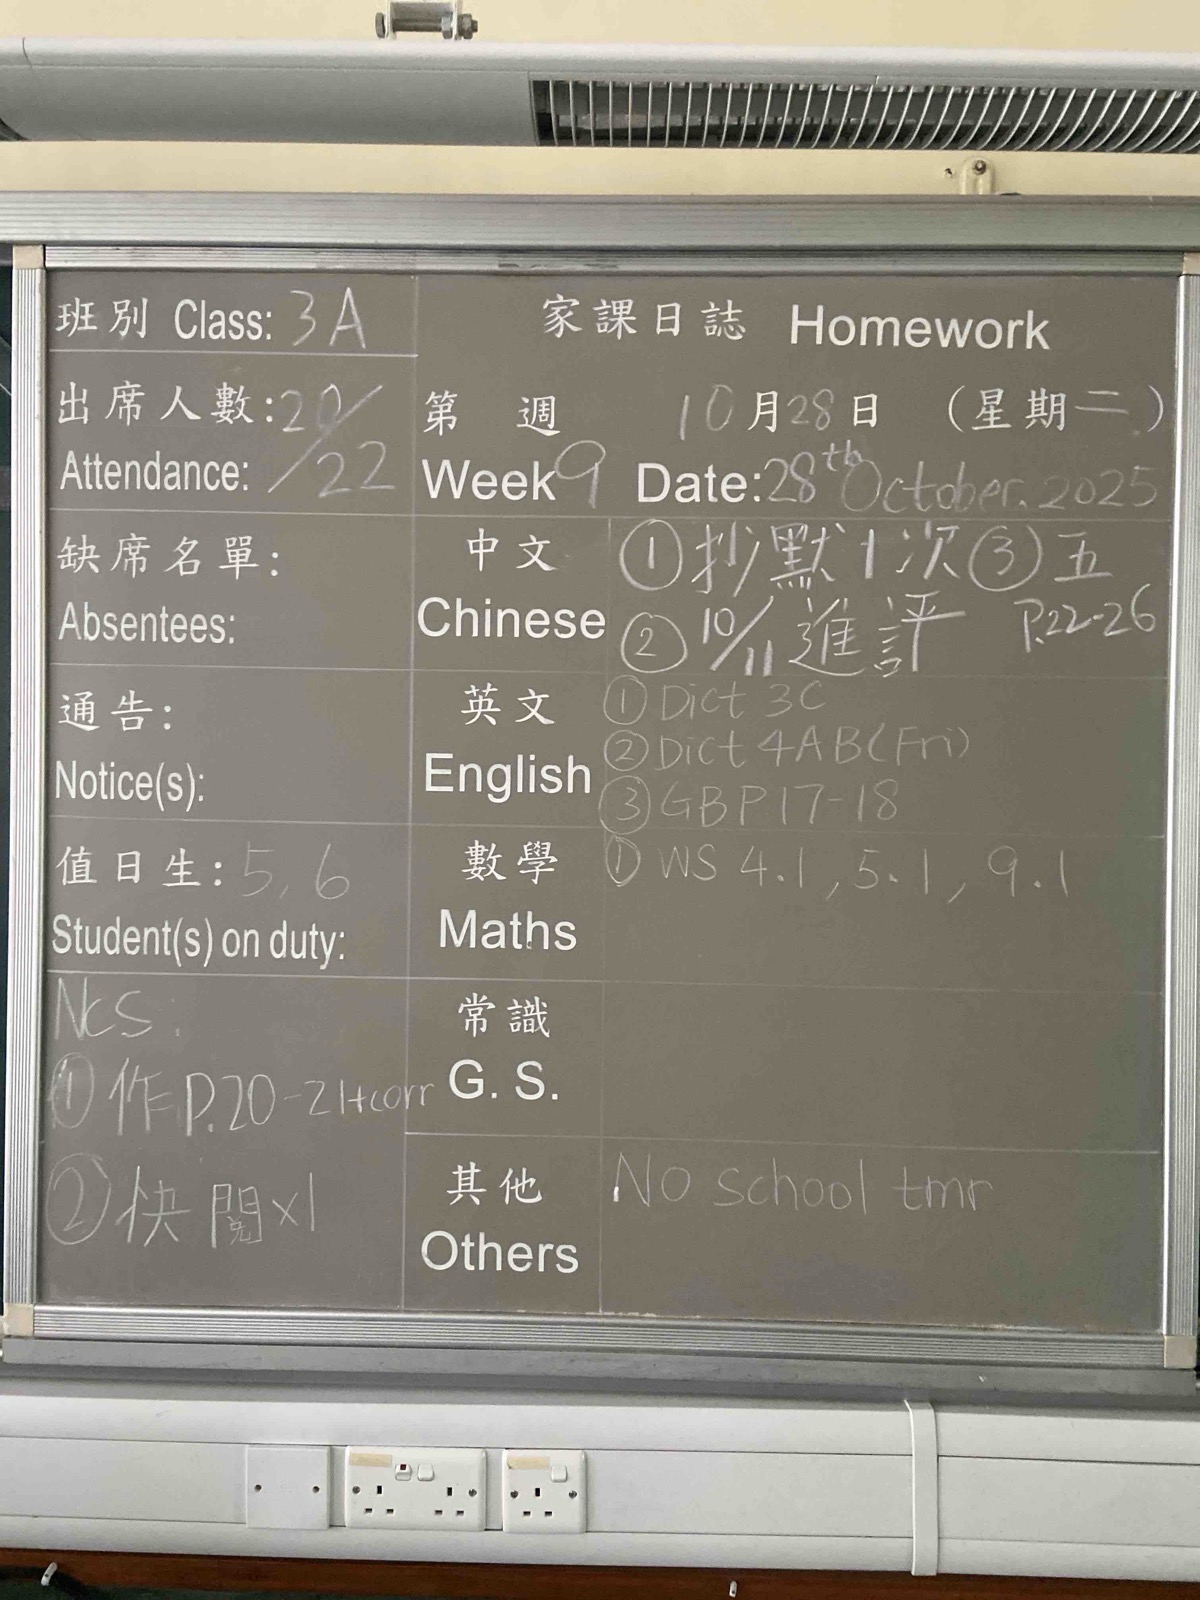 班別 Class: 3A
家課日誌 Homework
出席人數: 20/22
Attendance:
第 週 10月28日 (星期二)
Week 9 Date: 28th October. 2025
缺席名單:
Absentees:
中文
Chinese
① 抄默1次 ③ 五
② 10/11 進評 P.22-26
通告:
Notice(s):
英文
English
① Dict 3C
② Dict 4AB(Fri)
③ GBP17-18
值日生: 5, 6
Student(s) on duty:
數學
Maths
① WS 4.1, 5.1, 9.1
NCS:
① 作P.20-21+corr
② 快閱x1
常識
G. S.
其他
Others
No school tmr